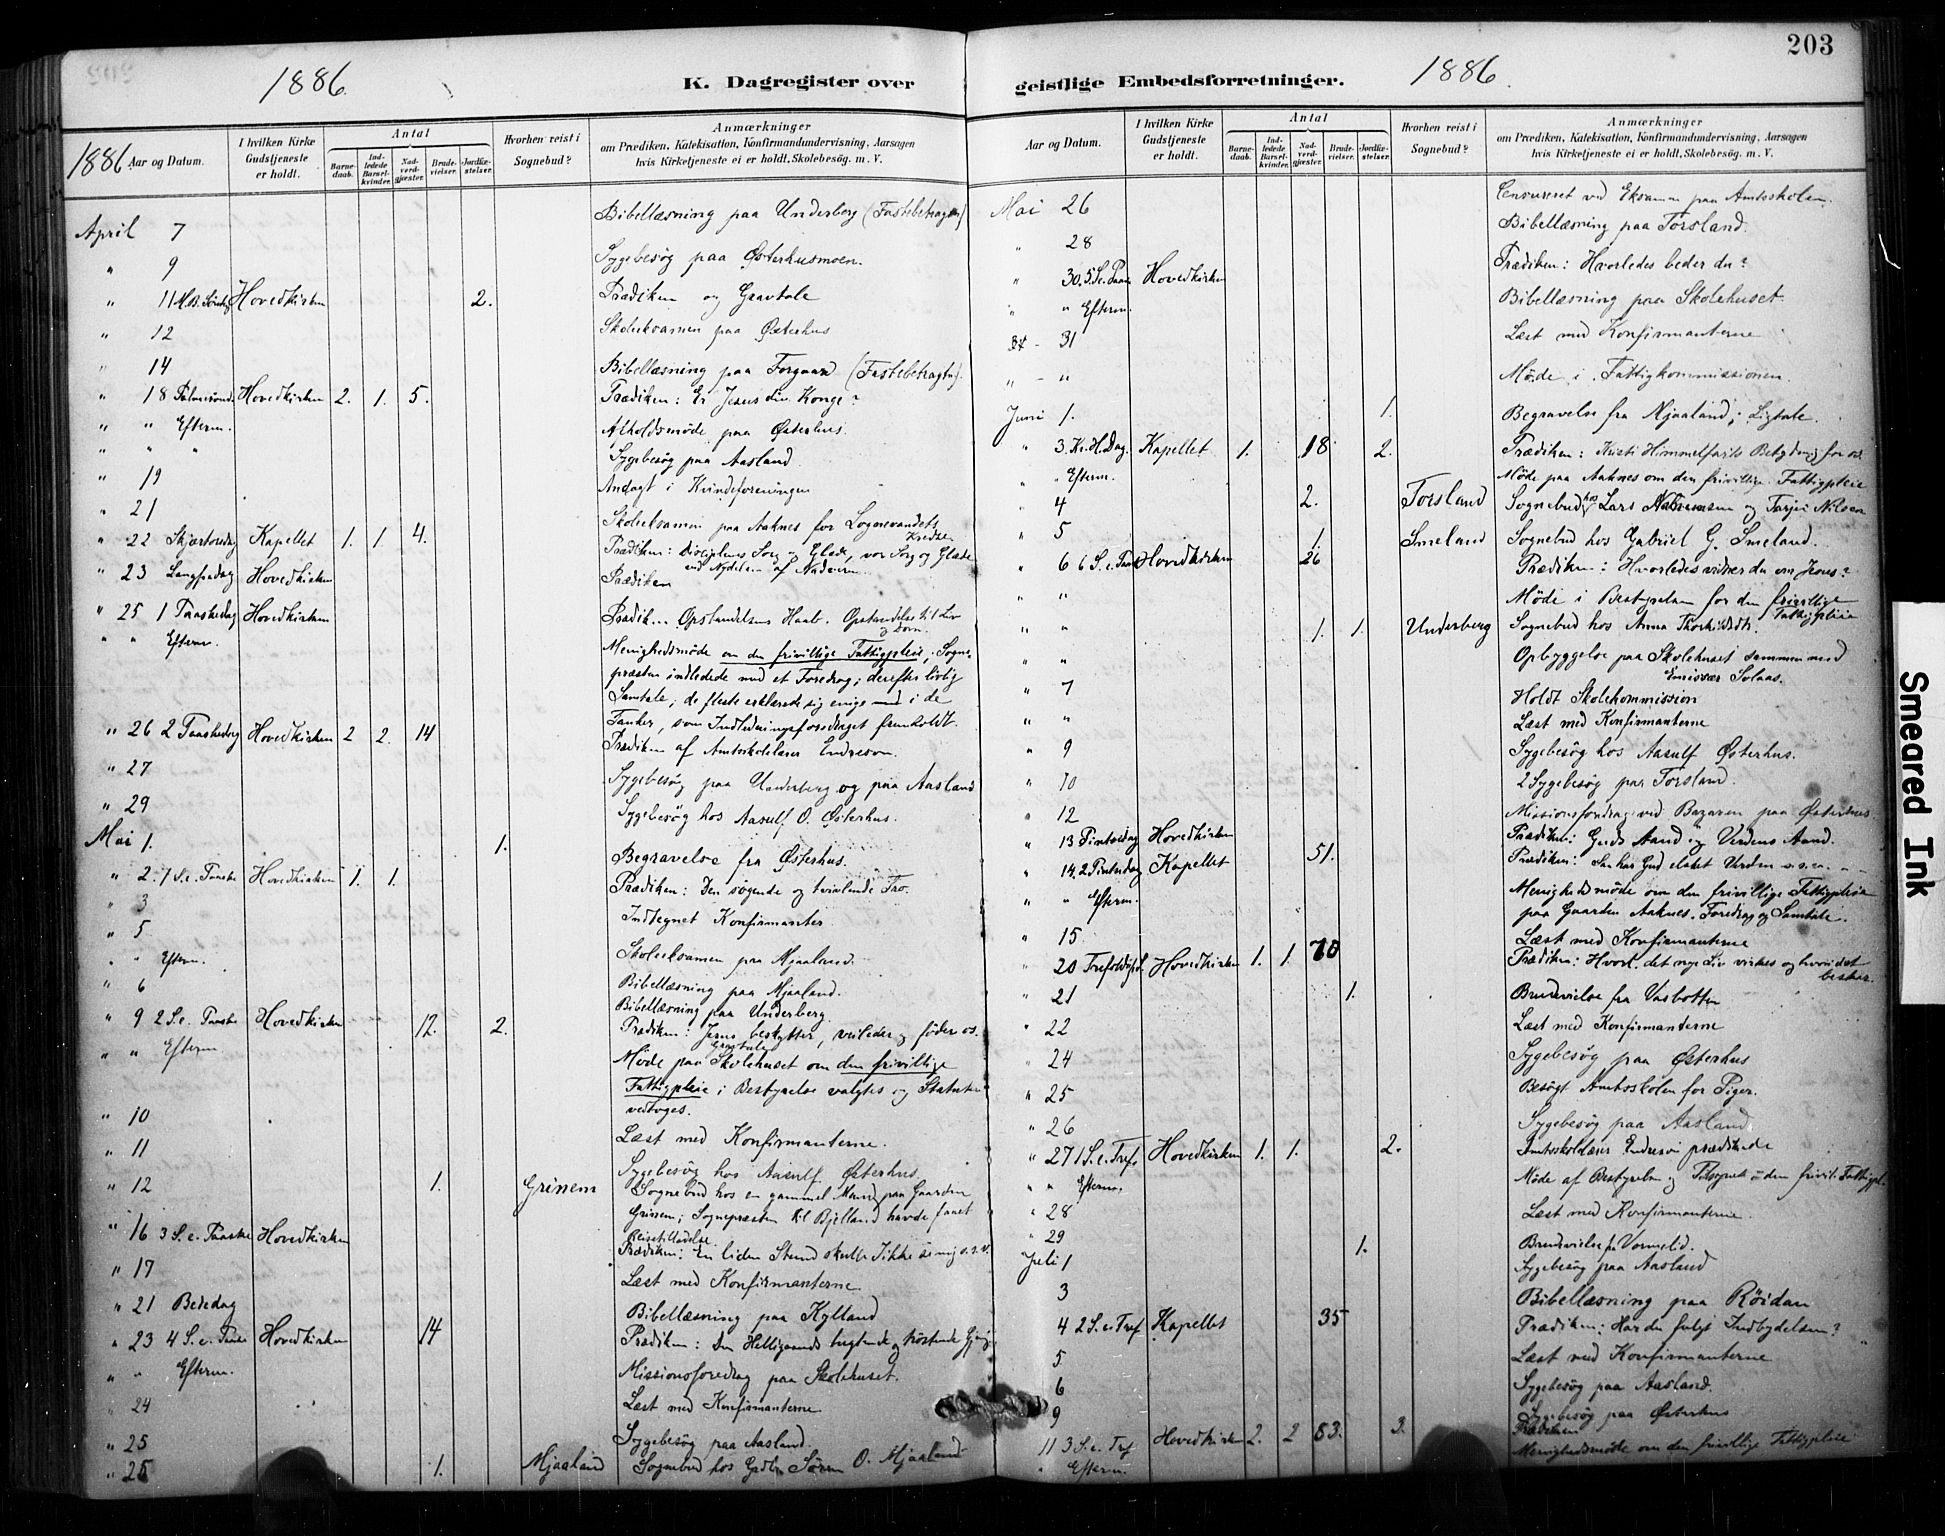 203
1886
K. Dagregister over
geistlige Embedsforretninger.
1886
1886
Aar og Datum.
I hvilken Kirke Gudstjeneste er holdt.
Antal
Barnedaab.
Indledede Barselkvinder.
Nadverdgjæster.
Brudevielser.
Jordfæstelser.
Hvorhen reist i Sognebud?
Anmærkninger
om Prædiken, Katekisation, Konfirmandundervisning, Aarsagen
hvis Kirketjeneste ei er holdt, Skolebesøg. m. V.
April 7 Bibellæsning paa Underberg
" 9 Sygebesøg paa Østerhusmoen.
" 11 Hovedkirken 2. Prædiken og Gravtale
" 12 Skoleeksamen paa Østerhus
" 14 Bibellæsning paa
" 18 Palmesønd. Hovedkirken 2. 1. 5. Prædiken: Er Jesus din Konge?
" " Efterm. Afholdsmøde paa Østerhus.
" " " Sygebesøg paa Aasland
" 19 Andagt i Kvindeforeningen
" 21 Skoleeksamen paa Aaknes for Sognevandets Kredse
" 22 Skjærtorsdag Kapellet 1. 1 4. Prædiken: Disciplenes Sorg og Glæde, vor Sorg og Glæde
ved Nydelsen af Nadveren.
" 23 Langfredag Hovedkirken Prædiken
" 25 1 Paaskedag Hovedkirken Opstandelsens Haab. Opstandelse til Liv
og Dom.
" " Efterm. Menighedsmøde om den frivillige Fattigpleie. Sogne-
præsten indledede med et Foredrag; derefter livlig
Samtale; de fleste erklærede sig enige med i de
Tanker, som Indledningsforedraget fremholdt.
" 26 2 Paaskedag Hovedkirken 2 2. 14 Prædiken af Amtsskolelærer Endreson.
" 27 Sygebesøg paa Underberg og paa Aasland
" 29 Sygebesøg hos Aasulf O. Østerhus.
Mai 1. 1. Begravelse fra Østerhus.
" 2. 1 S. e. Paaske Hovedkirken 1. 1. Prædiken: Den søgende og tvivlende Tro.
" 3 Indtegnet Konfirmanter
" 5 Skoleeksamen paa Mjaaland.
" " Efterm. Bibellæsning paa Mjaaland.
" 6 Bibellæsning paa Underberg.
" 9 2 S. e. Paaske Hovedkirken 12. 2. Prædiken: Jesus beskytter, veileder og føder os.
Gravtale
" " Efterm Møde paa Skolehuset om den frivillige
Fattigpleie; Bestyrelse valgtes og Statuter
vedtoges.
" 10 Læst med Konfirmanterne.
" 11 Sygebesøg hos Aasulf Østerhus
" 12 1. Grinem Sognebud hos en gammel Mand paa Gaarden
Grinem; Sognepræsten til Bjelland havde faaet
Reisetilladelse.
" 16 3 S. e. Paaske Hovedkirken Prædiken: En liden Stund skulle I ikke se mig o.s.v.
" 17 Læst med Konfirmanterne
" 21 Bededag Bibellæsning paa Kylland
" 23 4 S. e. Paaske Hovedkirken 14 Prædiken: Den Helligaands
" " Efterm. Missionsforedrag paa Skolehuset.
" 24 Læst med Konfirmanterne
" 25 Sygebesøg paa Aasland.
" 25 1. Mjaaland Sognebud hos Søren O. Mjaaland
Aar og Datum.
I hvilken Kirke Gudstjeneste er holdt.
Antal
Barnedaab.
Indledede Barselkvinder.
Nadverdgjæster.
Brudevielser.
Jordfæstelser.
Hvorhen reist i Sognebud?
Anmærkninger
om Prædiken, Katekisation, Konfirmandundervisning, Aarsagen
hvis Kirketjeneste ei er holdt, Skolebesøg. m. V.
Mai 26 Censureret ved Eksamen paa Amtsskolen.
" 28 Bibellæsning paa Torsland.
" 30. 5 S. e. Paaske Hovedkirken Prædiken: Hvorledes beder du?
" " Efterm. Bibellæsning paa Skolehuset.
31 Læst med Konfirmanterne
" - " Møde i Fattigkommissionen.
Juni 1. 1. Begravelse fra Mjaaland; Ligtale.
" 3. Kr. H. Dag. Kapellet 1. 18 2. Prædiken: Kristi Himmelfarts Betydning for os.
" " Efterm. Møde paa Aaknes om den frivillige Fattigpleie
" 4 2. Torsland Sognebud hos Lars og Tarjei Nilsen
" 5 1. Smeland Sognebud hos Gabriel G. Smeland.
" 6 6 S. e. Paaske Hovedkirken 26 Prædiken: Hvorledes vidner du om Jesus?
" " Møde i Bestyrelsen for den frivillige Fattigpleie
" " 1. 1. Underberg Sognebud hos Anna
" " Opbyggelse paa Skolehuset sammen med
Emissær Solaas.
" 7 Holdt Skolekommission
" " Læst med Konfirmanterne
" 9 Sygebesøg hos Aasulf Østerhus.
" 10 2 Sygebesøg paa Torsland.
" 12 Missionsforedrag ved Bazaren paa Østerhus
" 13 Pintsedag Hovedkirken Prædiken: Guds Aand og Verdens Aand.
" 14. 2 Pintsedag Kapellet 51. Prædiken: Saa har Gud elsket Verden o.s.v.
" " Efterm. Menighedsmøde om den frivillige Fattigpleie
paa Gaarden Aaknes. Foredrag og Samtale.
" 15. Læst med Konfirmanterne
" 20 Trefoldigh. Hovedkirken 1. 1. 70 Prædiken: Hvorl. det nye Liv virkes og hvori det
bestaar.
" 21 1. Brudevielse fra Vasbotten
" 22 Læst med Konfirmanterne
" 24 Sygebesøg paa Østerhus
" 25 Besøgt Amtsskolen for Piger.
" 26 Sygebesøg paa Aasland
" 27 1 S. e. Tref. Hovedkirken 1. 1. 2. Amtsskolelærer Endreson prædikede
" " Efterm. Møde af Bestyrelse og Tilsynet den frivil. Fattigpl.
" 28 Læst med Konfirmanterne.
" 29 1. Brudevielse fra
Juli 1 Sygebesøg paa Aasland
3 Bibellæsning paa Røidan
" 4 2 S. e. Tref Kapellet 35 Prædiken: Har du fulgt Indbydelsen?
5 Læst med Konfirmanterne
6 Sygebesøg paa Aasland.
9 Sygebesøg paa Østerhus
11 3 S. e. Tref Hovedkirken 2. 2 53. 3. Prædiken
" Efterm. Menighedsmøde om den frivillige Fattigpleie
Smeared Ink